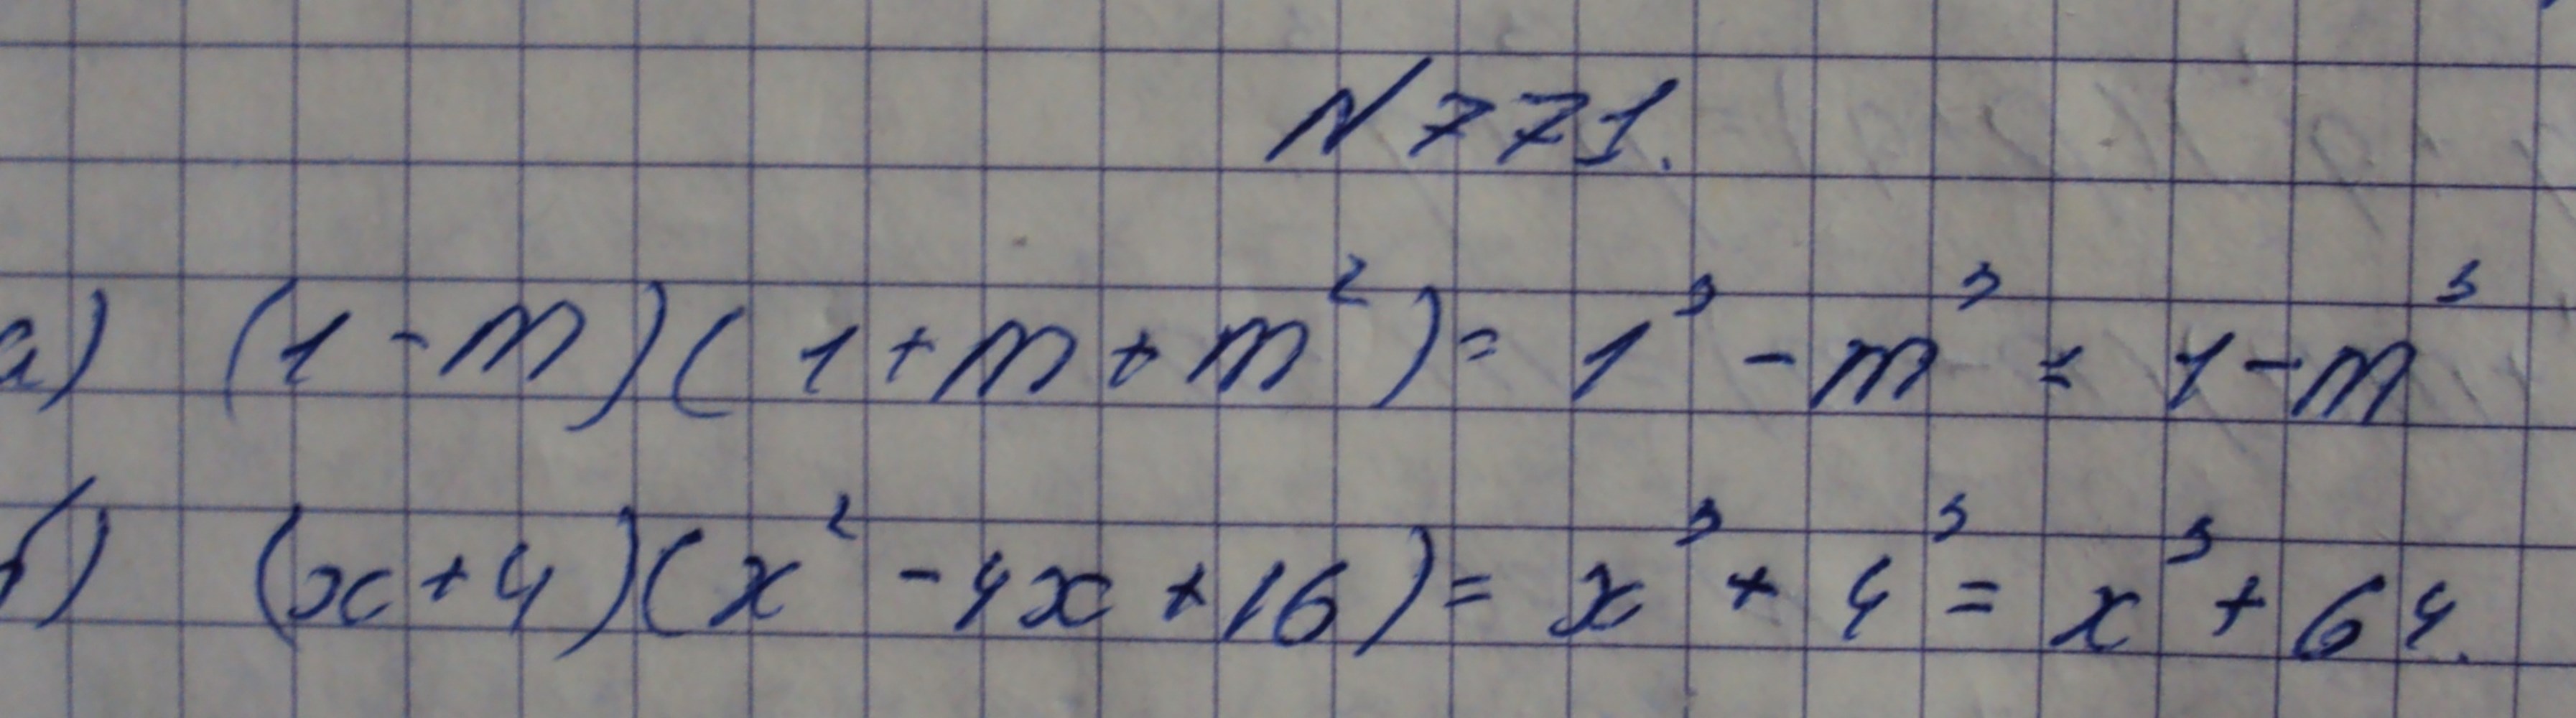 N 771.
а) (1-m)(1+m+m²)= 1³-m³ = 1-m³
б) (x+4)(x²-4x+16)= x³+4³= x³+64.